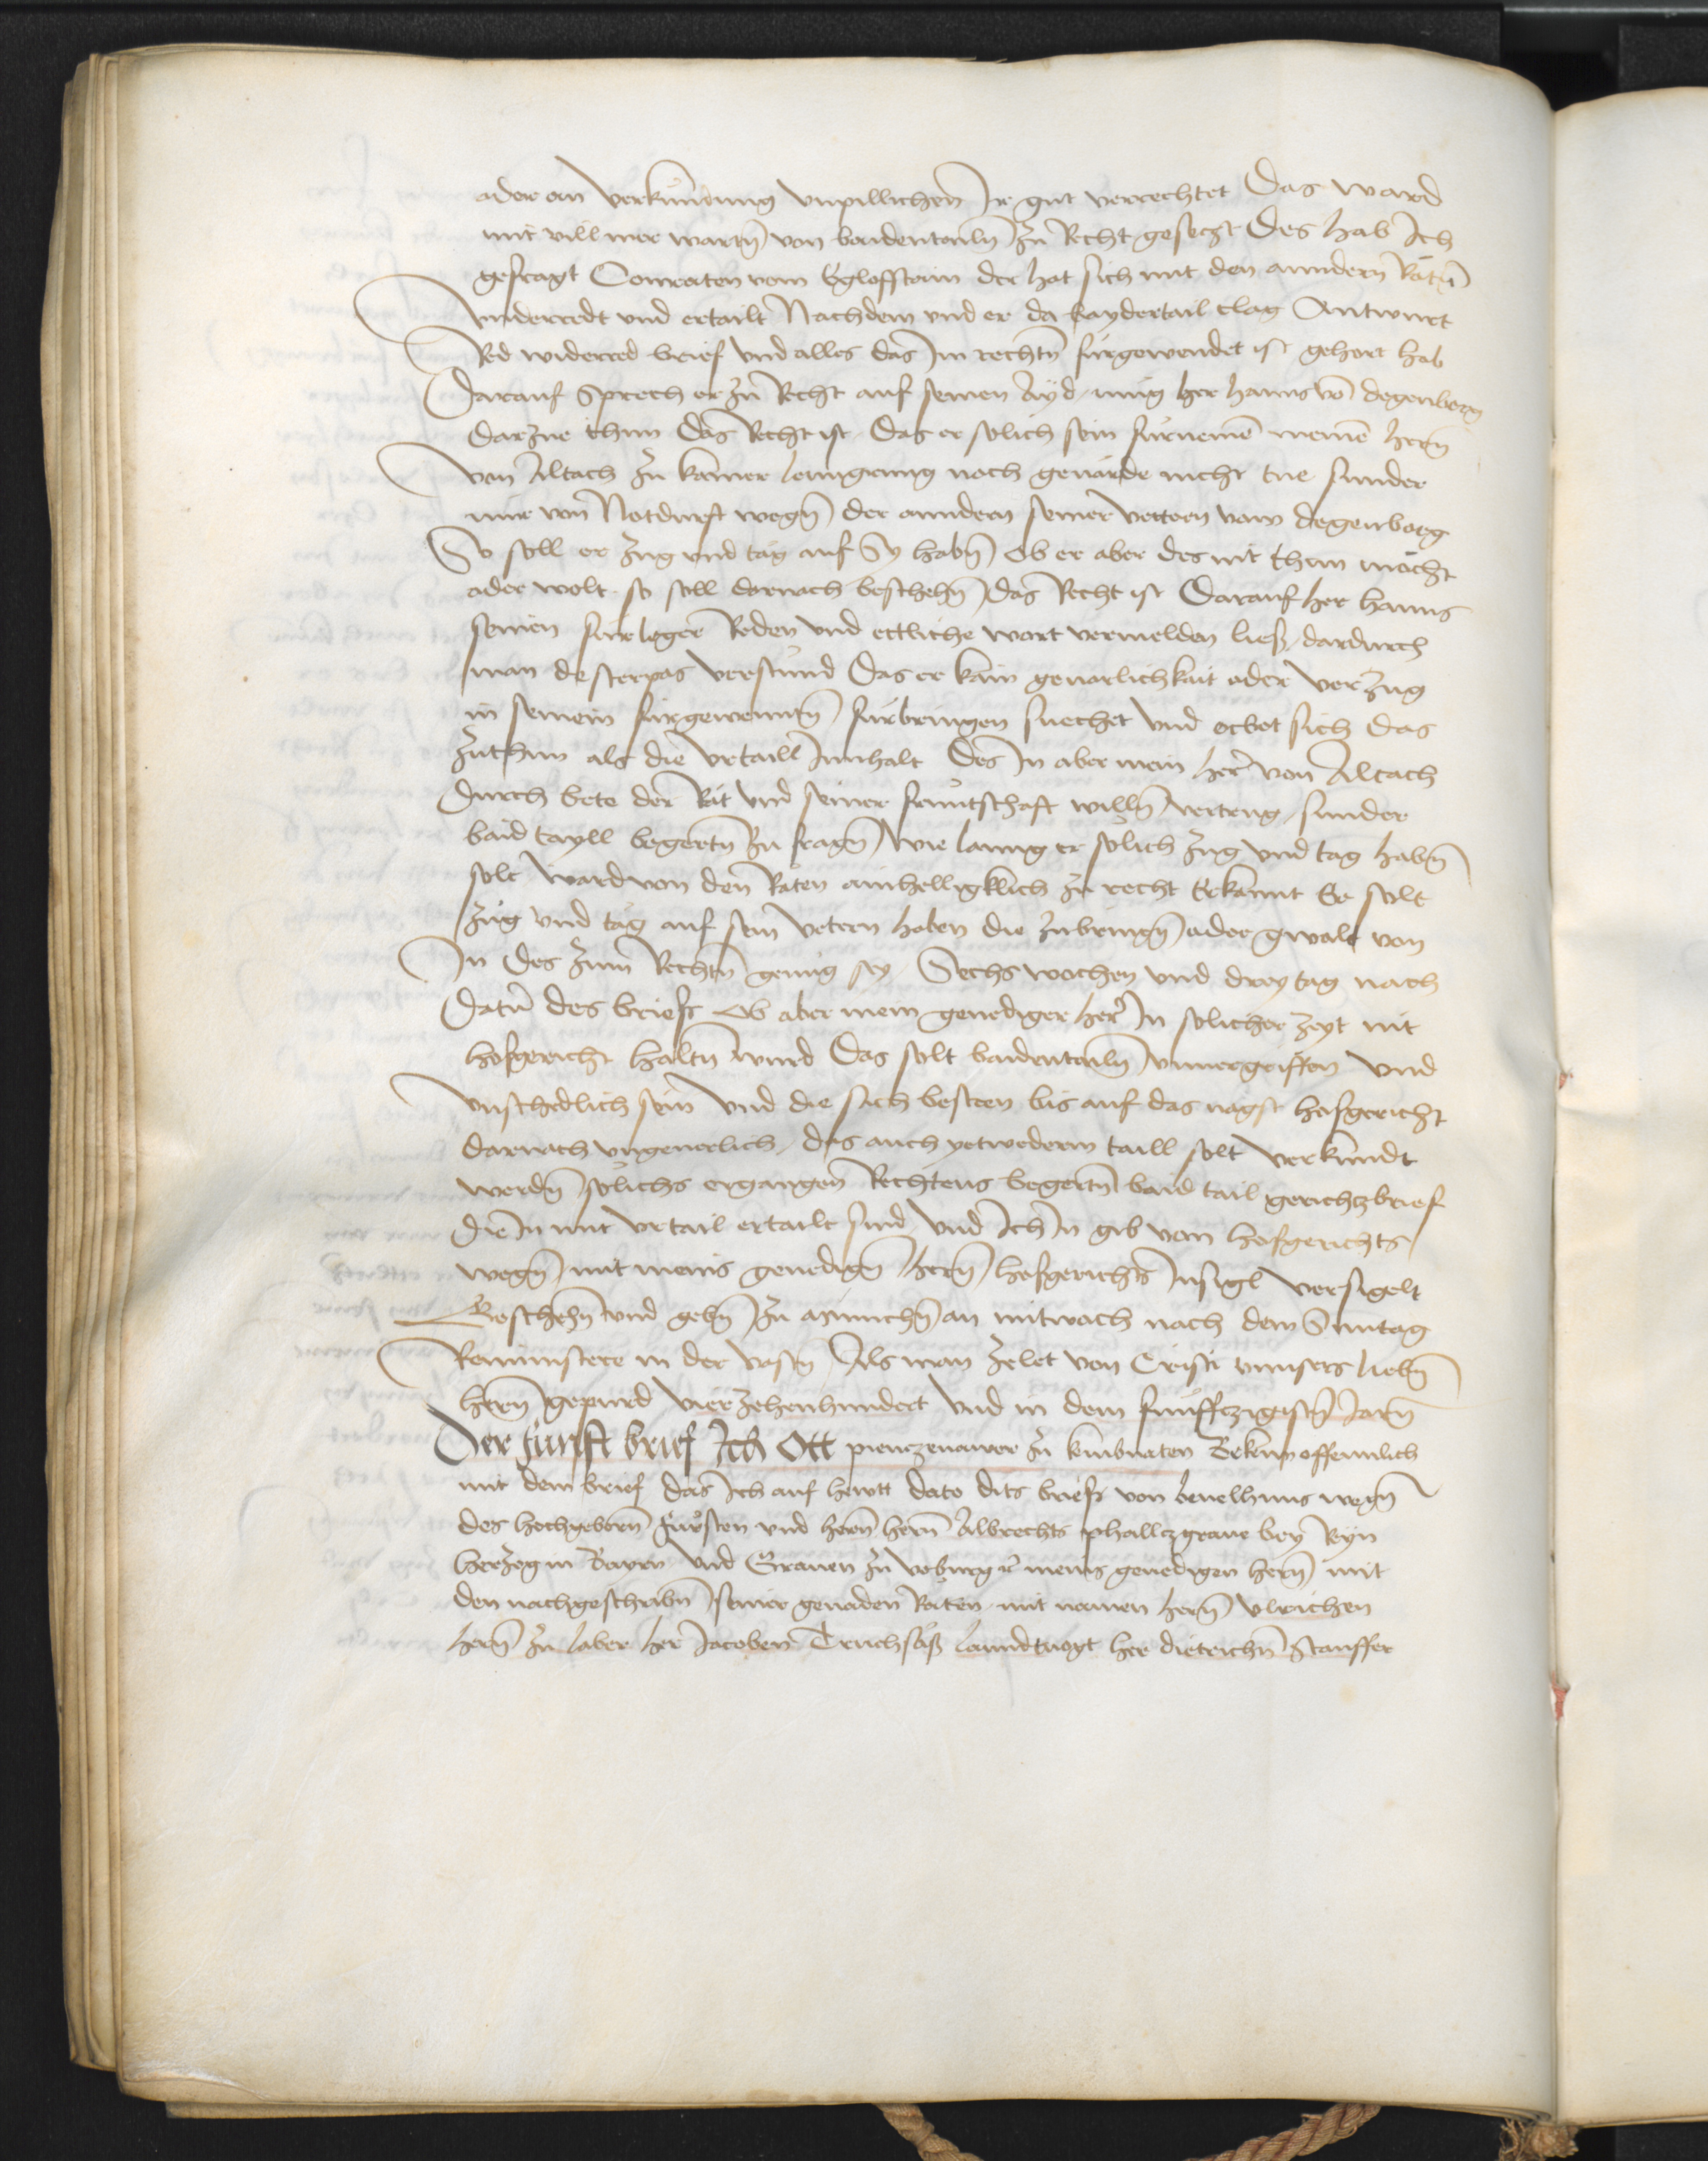 oder on verkundung unpillichen Ir gut verrechtet Das ward
mit vill mer wartn von baidentailn zu Recht gesetzt Des hab Ich
gefragt Conraten vom Eglofstain der hat sich mit den anndern Rätn
underredt und ertailt Nachdem und er da baydertail clag Antwurt
Red widerred brief und alles das Im rechtn fürgewendet ist gehort hab
Darauf Sprech er zu Recht auf seinen Ayd, mug her hanns vo degenberg
darzue thun Das Recht ist, Das er solich sein fürnemē meinē hern
von Altach zu kainer lenngerung noch geuärde nicht tue sunder
nür von Notdurft wegn der anndern seiner vettern vom degenberg
So soll er Zug und tag auf Sy habn Ob er aber des nit thun möcht
oder wolt. so soll darnach beschehn Das Recht ist Darauf her hanns
seinen fürleger Reden und ettliche wort vermelden ließ, dardurch
man desterpas verstund Das er kain geuarlichkait oder verzug
in seinem fürgewenntn fürbringen suechet und erbot sich das
zuthun als die urtaill Innhalt Des In aber mein her von Altach
Durch bete der Rät und seiner fruntschaft willn vertrug, sunder
baid tayll begertn zu fragn wie lanng er solich zug und tag habn
solt ward von den Räten ainhelligklich zu recht Erkannt Er solt
zug und tag auf sein vetern haben die zubringn oder gwalt von
In des zum Rechtn genug sey, Sechs wochen und drey tag nach
Datū des briefs Ob aber mein genediger her In solicher zeyt nit
hofgericht haltn wurd Das solt baidentailn unuergriffen und
unschedlich sein und die sach besteen bis auf das nägst hofgericht
darnach ungeuerlich, das auch yetwederm taill solt verkundt
werdn solichs ergangen Rechtens begertn baid tail gerichtzbrief
die In mit urtail ertailt sind, und Ich In gib von hofgerichts
wegn mit meins genedign hern hofgerichts Insigl versigelt
Beschehn und gebn zu Münchn an mitwoch nach dem Suntag
Reminiscere in der vastn Als man zelet von Cristi unnsers liebn
hern gepurd vierzehenhundert und in dem funffczigistn Jarn
Der funft brief Ich Ott pienczenawer zu kembnaten Bekenn offennlich
mit dem brief das Ich auf hewtt dato dits briefs von beuelhnus wegn
des hochgeborn Fürsten und hern hern Albrechts phallczgraue bey Ryn
herzog in Bayrn und Grauen zu voburg ꝛc meins genedigen hern mit
den nachgeschribn seiner genaden Räten, mit namen hern Ulrichen
hern zu laber her Jacoben Truchsäß lanndtuogt her dietrichn Stauffer